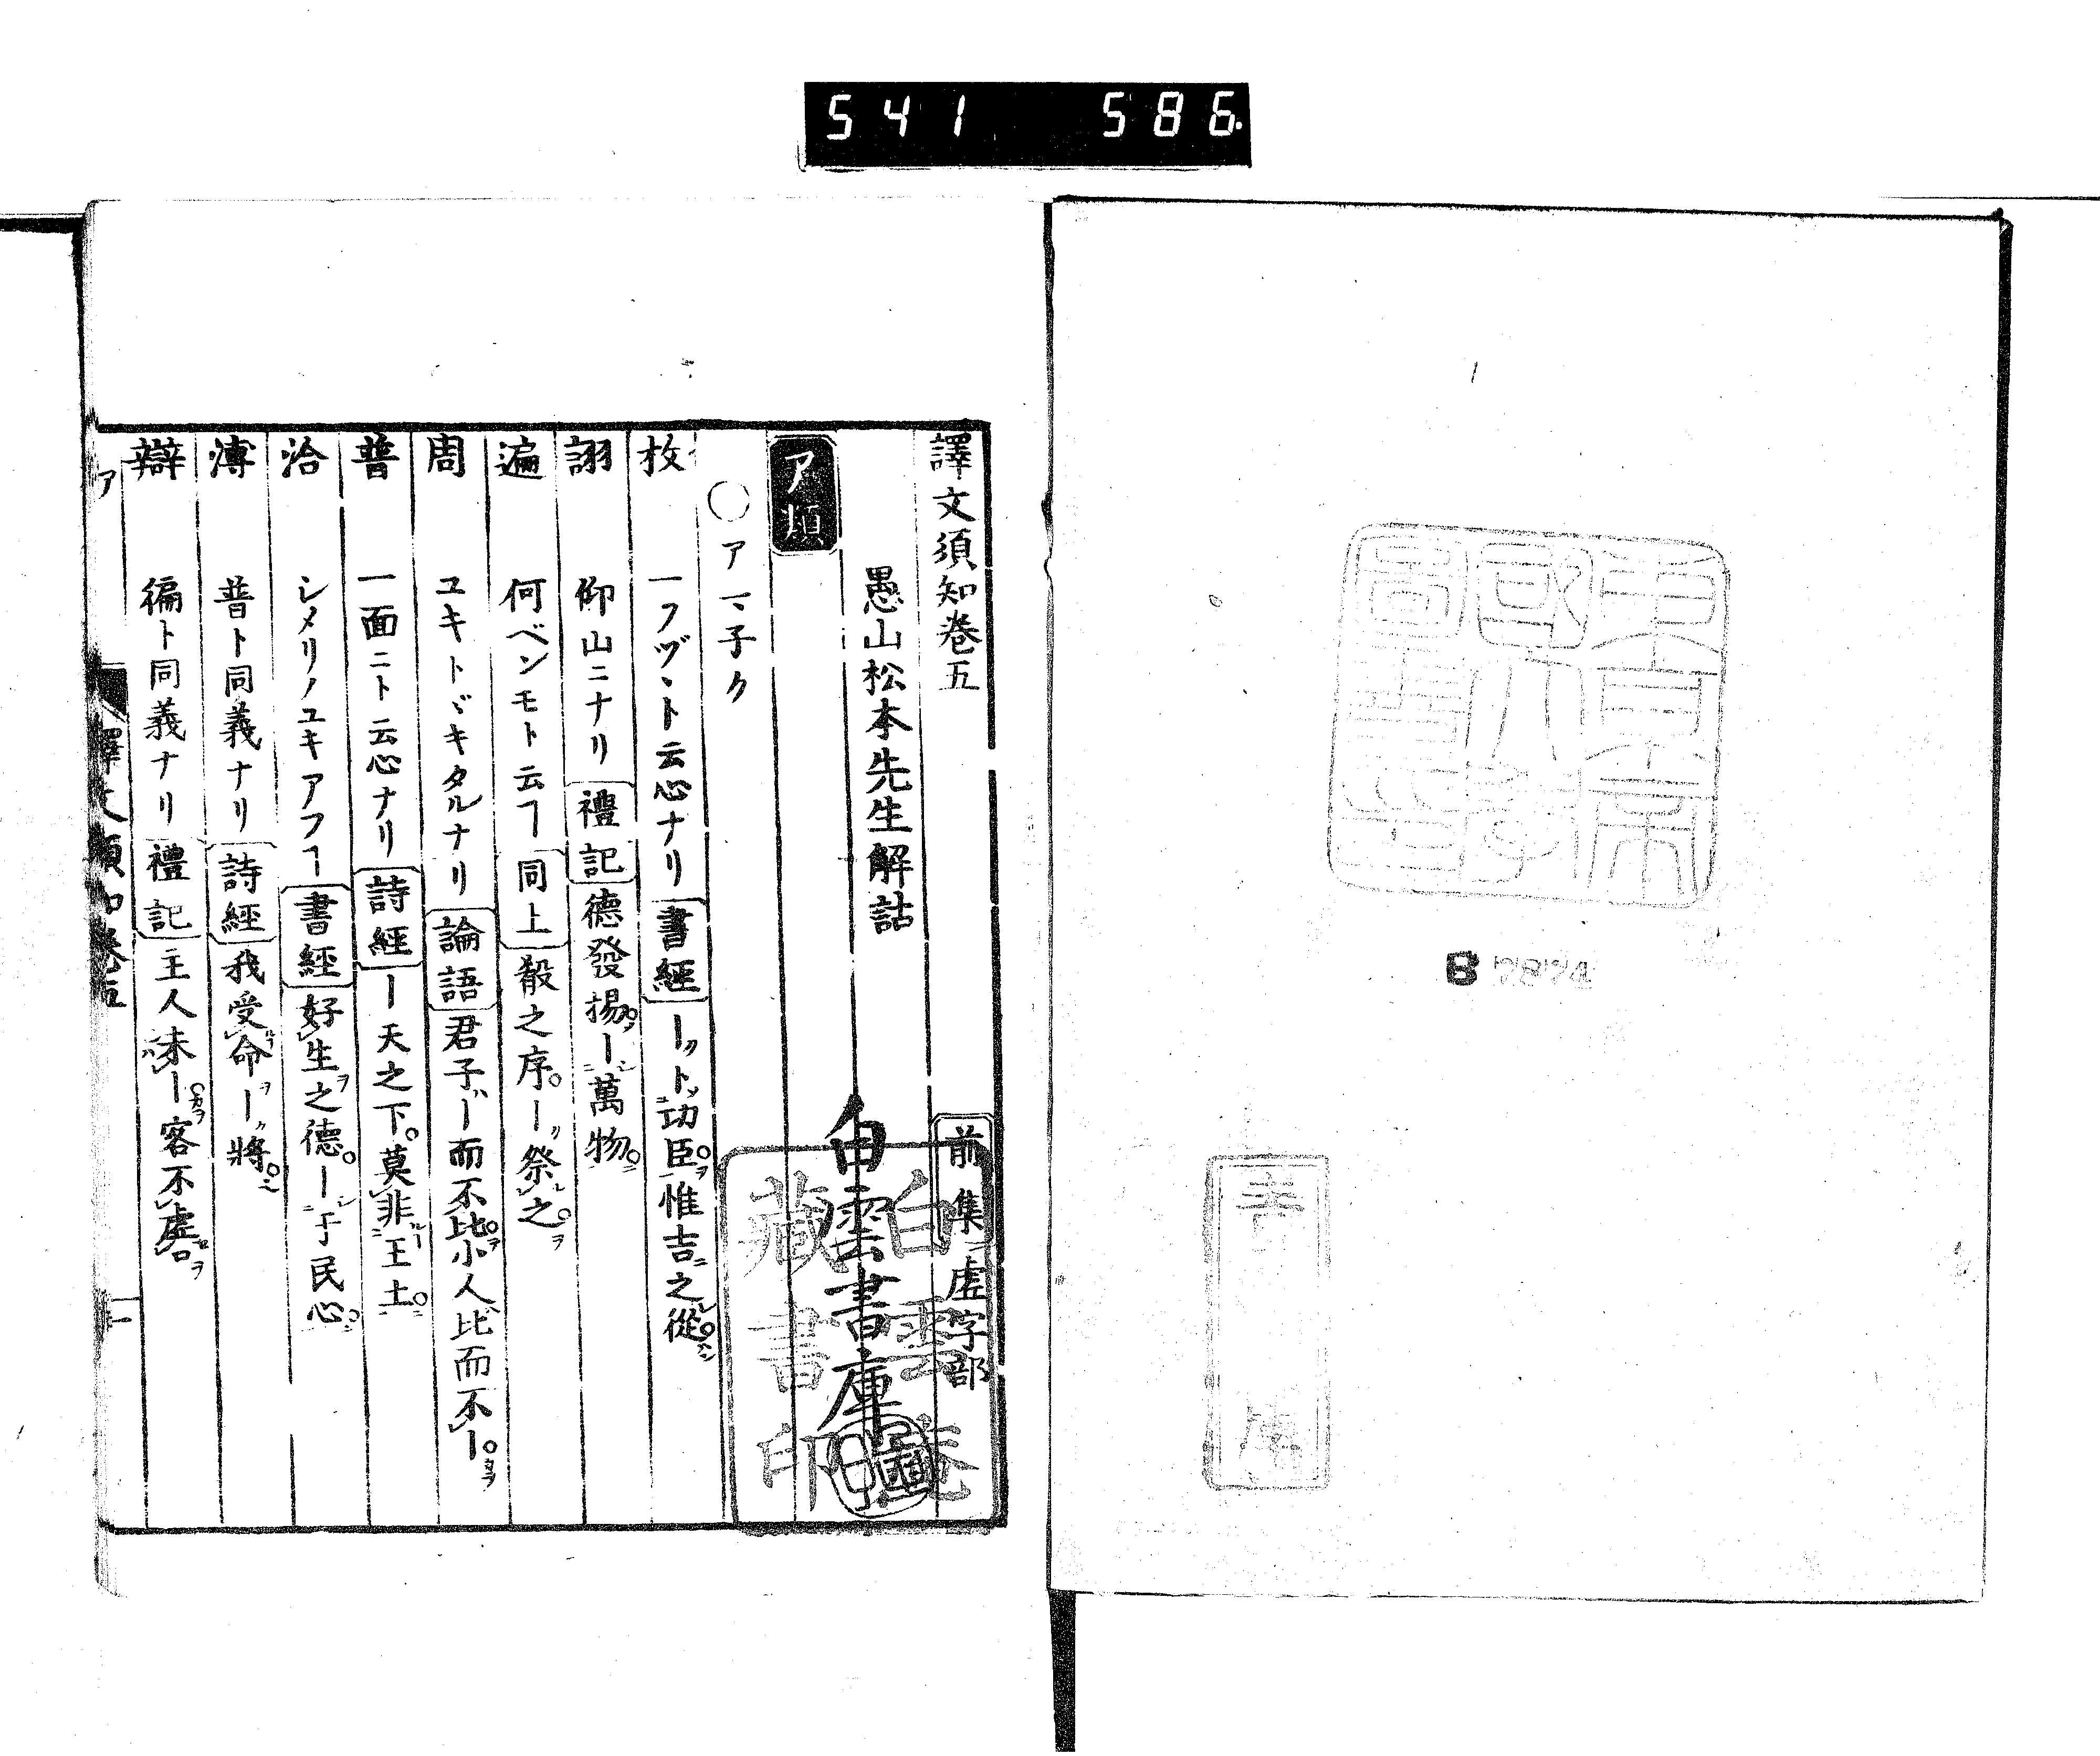 541 586
B 7874
譯文須知巻五
前集 虚字部
愚山松本先生解詁
白雲書庫
白雲菴
藏書印
ア類
○アマ子ク
枚 一フヅヽト云心ナリ 書經 ーク ト功臣ヲ惟吉之從
詡 仰山ニナリ 禮記 德發揚ー萬物
遍 何ベンモト云ヿ 同上 殽之序ー祭之
周 ユキトヾキタルナリ 論語 君子ー而不比小人比而不ー
普 一面ニト云心ナリ 詩經 ー天之下莫非王土
洽 シメリノユキアフヿ 書經 好生之德ー于民心
溥 普ト同義ナリ 詩經 我受命ー將
辯 徧ト同義ナリ 禮記 主人未ー客不虚口
ア
譯文須知巻五
一